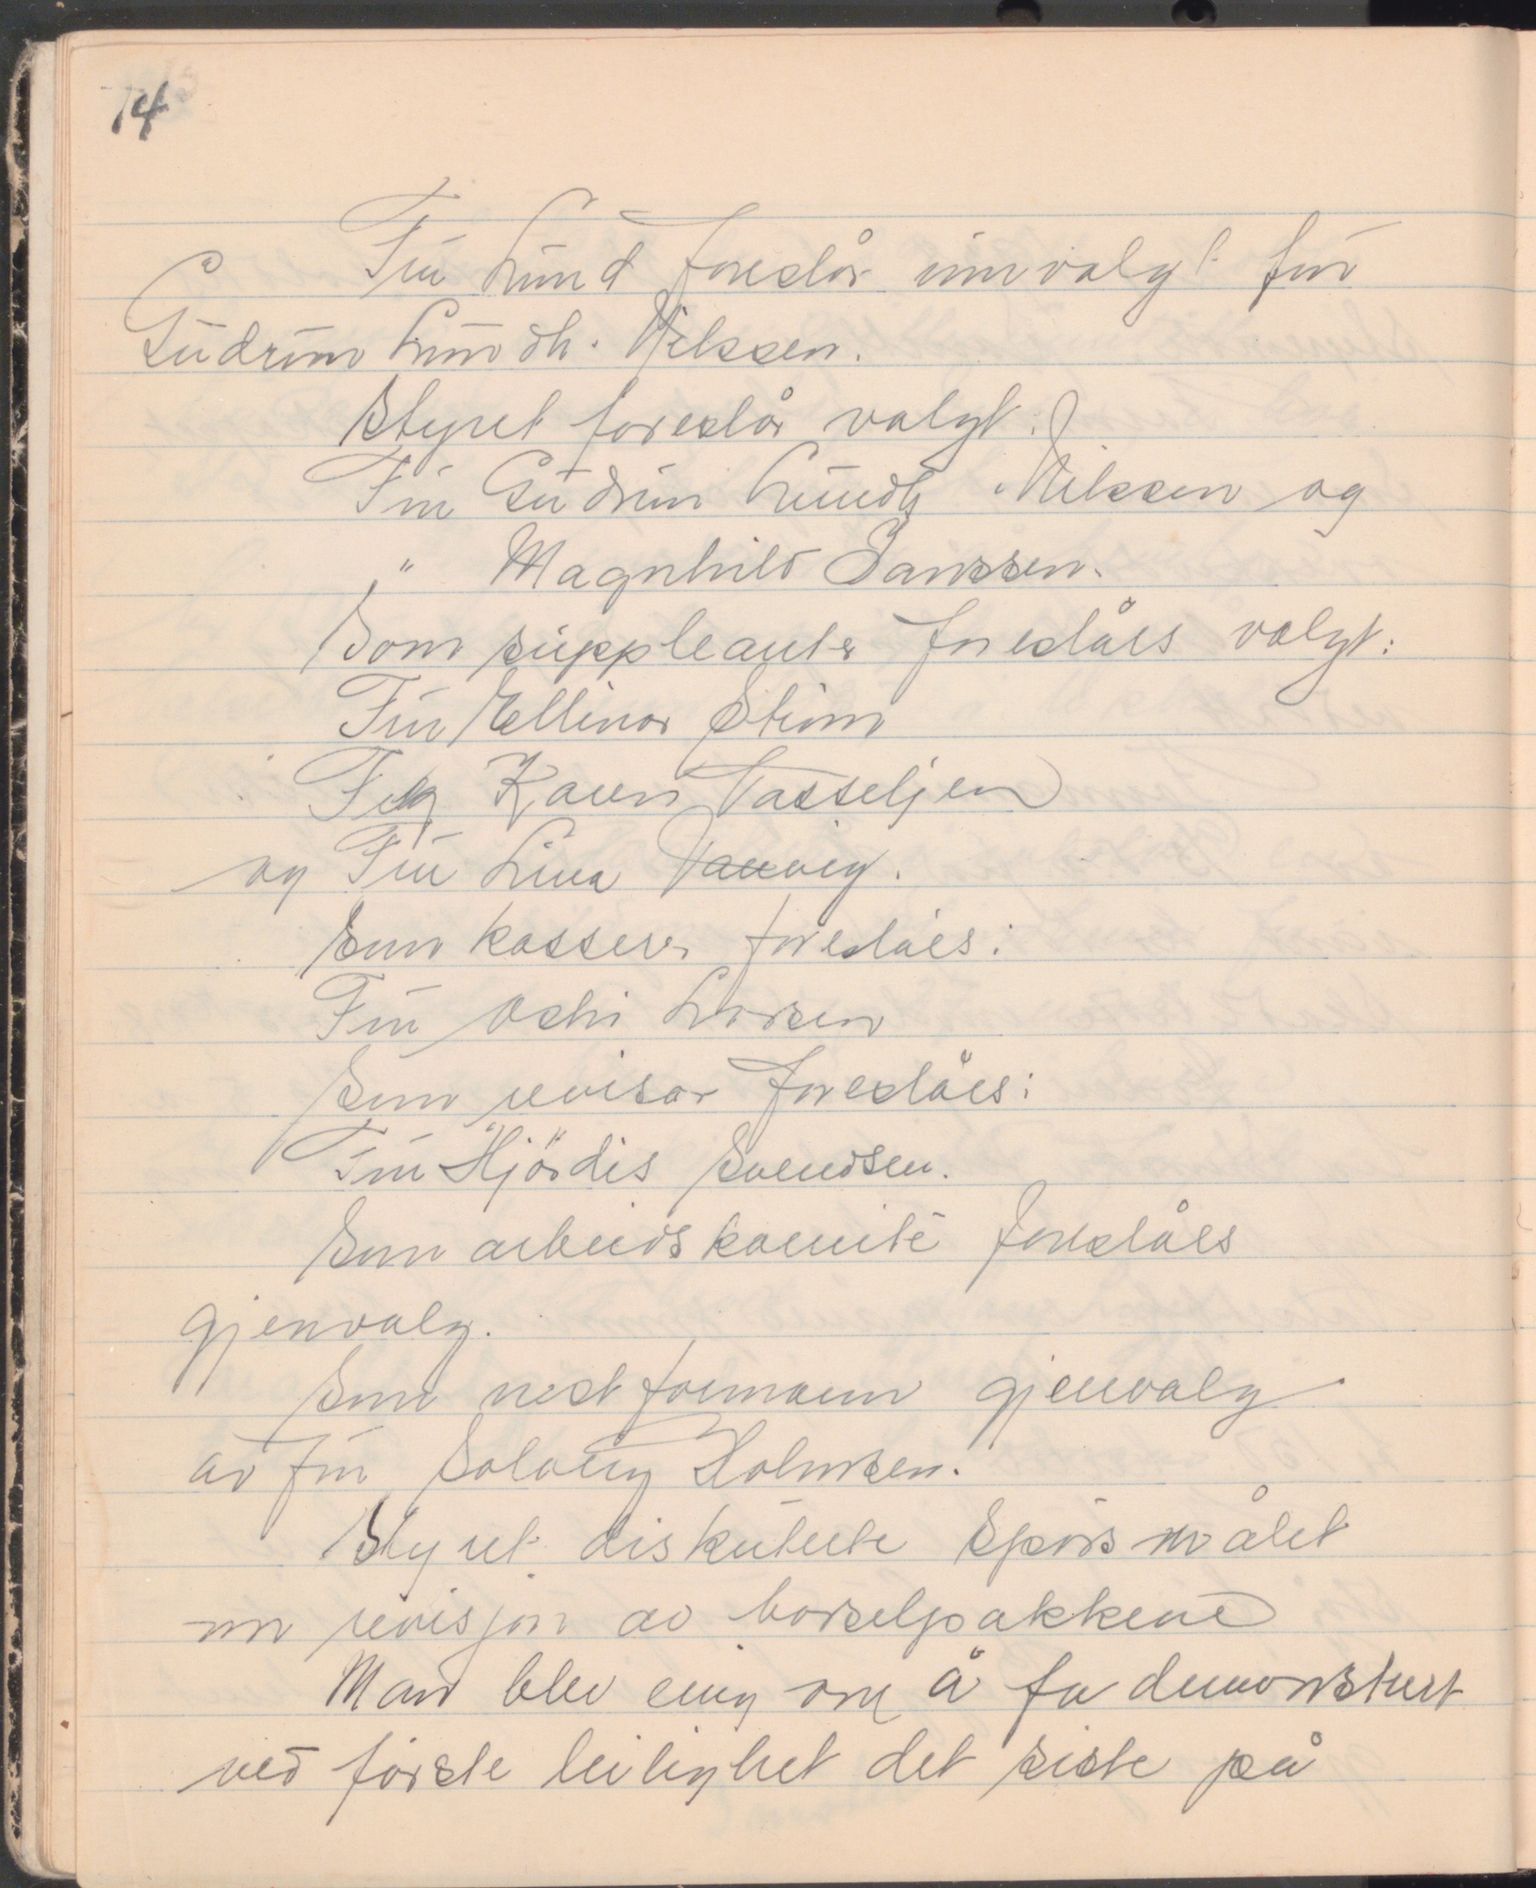 14
Fru Lund foreslår innvalgt fru
Gudrun Lundh. Nilssen.
Styret foreslår valgt:
Fru Gudrun Lundh Nilssen og
" Magnhild Janssen.
Som suppleanter foreslåes valgt:
Fru Ellinor Strøm
Frk Karen Vasseljen
og Fru Lina
Som kasserer foreslåes:
Fru Larsen
Som revisor foreslåes:
Fru Hjördis Svendsen.
Som arbeidskomité foreslåes
gjenvalg.
Som nestformann gjenvalg
av fru Solveig Holmsen.
Styret diskuterte spörsmålet
om revisjon av barselpakkene
Man blev enig om å få demonstrert
ved förste leilighet det siste på